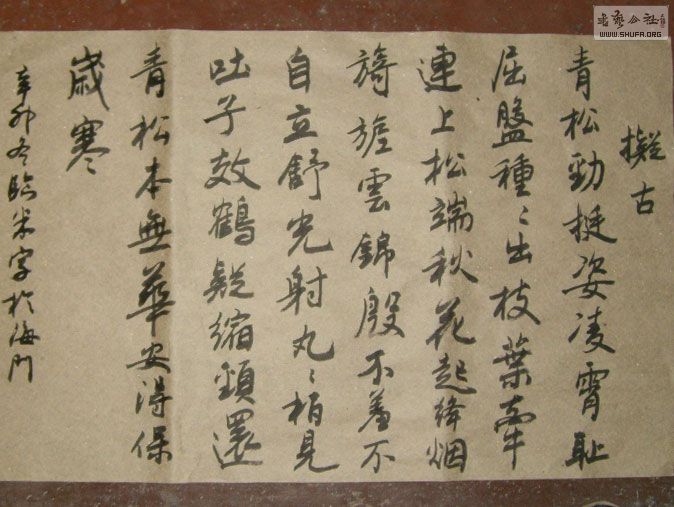 擬古
青松勁挺姿凌霄耻
屈盤種〻出枝葉牽
連上松端秋花起絳烟
旖旎雲錦殷不羞不
自立舒光射丸〻栢見
吐子效鶴疑縮頸還
青松本無華安得保
歲寒
辛卯冬臨米字於海門
書藝公社
WWW.SHUFA.ORG